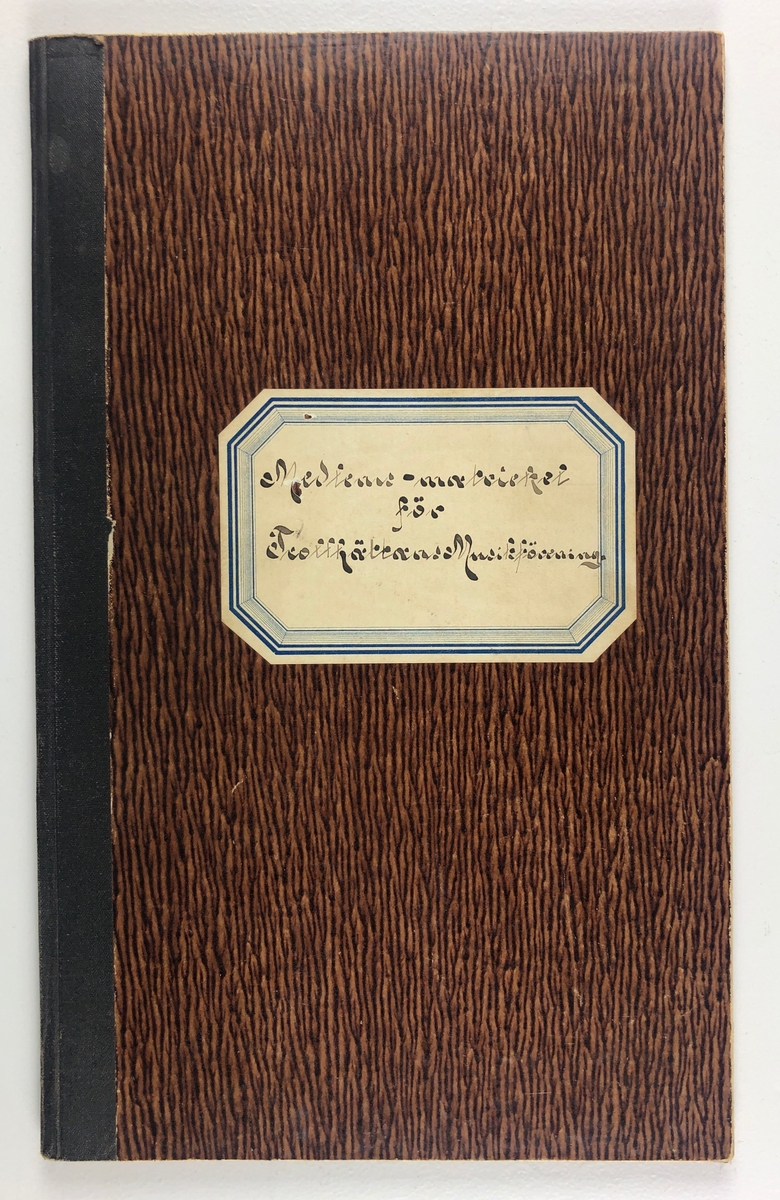 Medlems-matrickel
för
Trollhättans Musikförening.